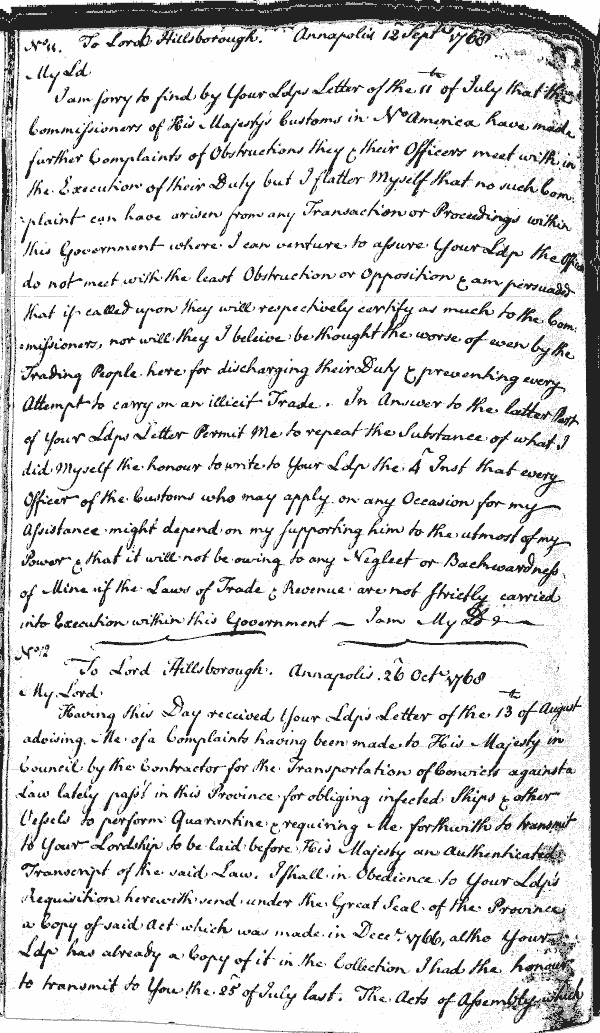 No 11. To Lord Hillsborough. Annapolis 12 Septr 1768
My Ld
I am sorry to find by Your Ldps Letter of the 11th of July that the
Commissioners of His Majestys Customs in No America have made
further Complaints of Obstructions they & their Officers meet with in
the Execution of their Duty but I flatter Myself that no such Com-
plaint can have arisen from any Transaction or Proceedings within
this Government where I can venture to assure Your Ldp the Officers
do not meet with the least Obstruction or Opposition & am persuaded
that if called upon they will respectively certify as much to the Com-
missioners, nor will they I beleive be thought the worse of even by the
Trading People here for discharging their Duty & preventing every
Attempt to carry on an illicit Trade. In Answer to the latter Part
of Your Ldps Letter Permit Me to repeat the Substance of what I
did Myself the honour to write to Your Ldp the 4th Inst that every
Officer of the Customs who may apply on any Occasion for my
Assistance might depend on my supporting him to the utmost of my
Power & that it will not be owing to any Neglect or Backwardness
of Mine if the Laws of Trade & Revenue are not strictly carried
into Execution within this Government — I am My Ld &
No 12
To Lord Hillsborough. Annapolis. 26th Octr 1768
My Lord
Having this Day received Your Ldp's Letter of the 13th of August
advising Me of a Complaints having been made to His Majesty in
Council by the Contractor for the Transportation of Convicts against a
Law lately pass'd in this Province for obliging infected Ships & other
Vessels to perform Quarantine & requiring Me forthwith to transmit
to Your Lordship to be laid before His Majesty an Authenticated
Transcript of the said Law. I shall in Obedience to Your Ldp's
Requisition herewith send under the Great Seal of the Province
a Copy of said Act which was made in Decer. 1766, altho Your
Ldp has already a Copy of it in the Collection I had the honour
to transmit to You the 25th of July last. The Acts of Assembly which